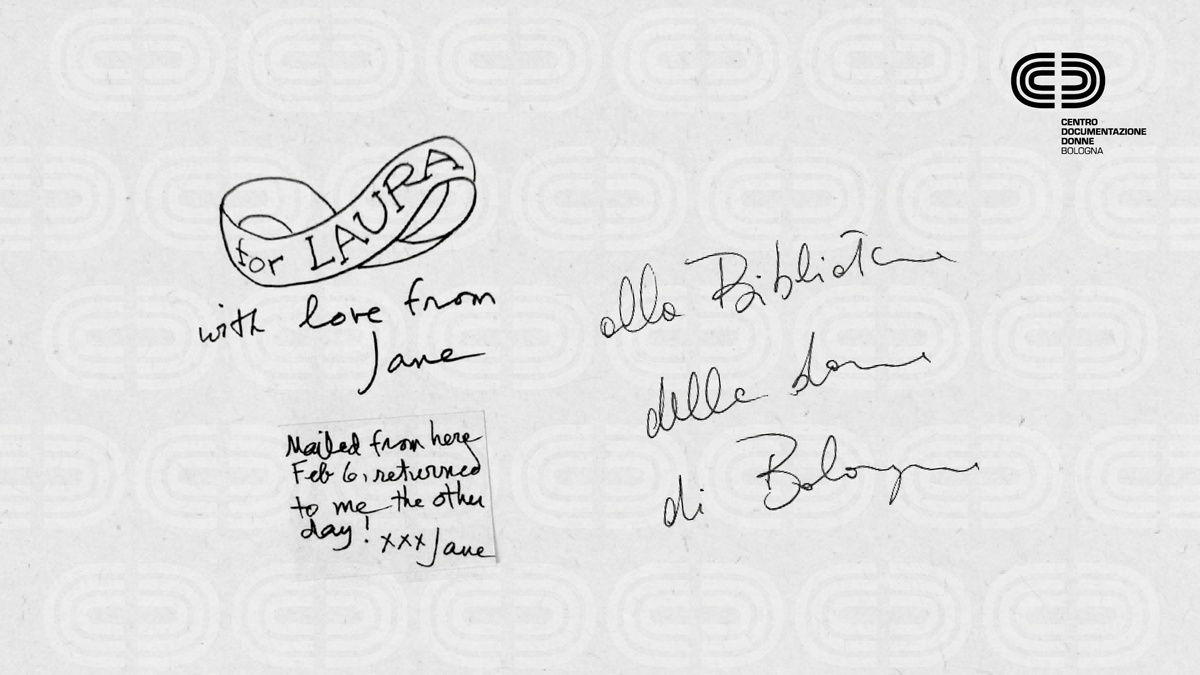 for LAURA
with love from
Jane
Mailed from here
Feb 6, returned
to me the other
day! xxx Jane
alla Biblioteca
delle donne
di Bologna
CENTRO
DOCUMENTAZIONE
DONNE
BOLOGNA